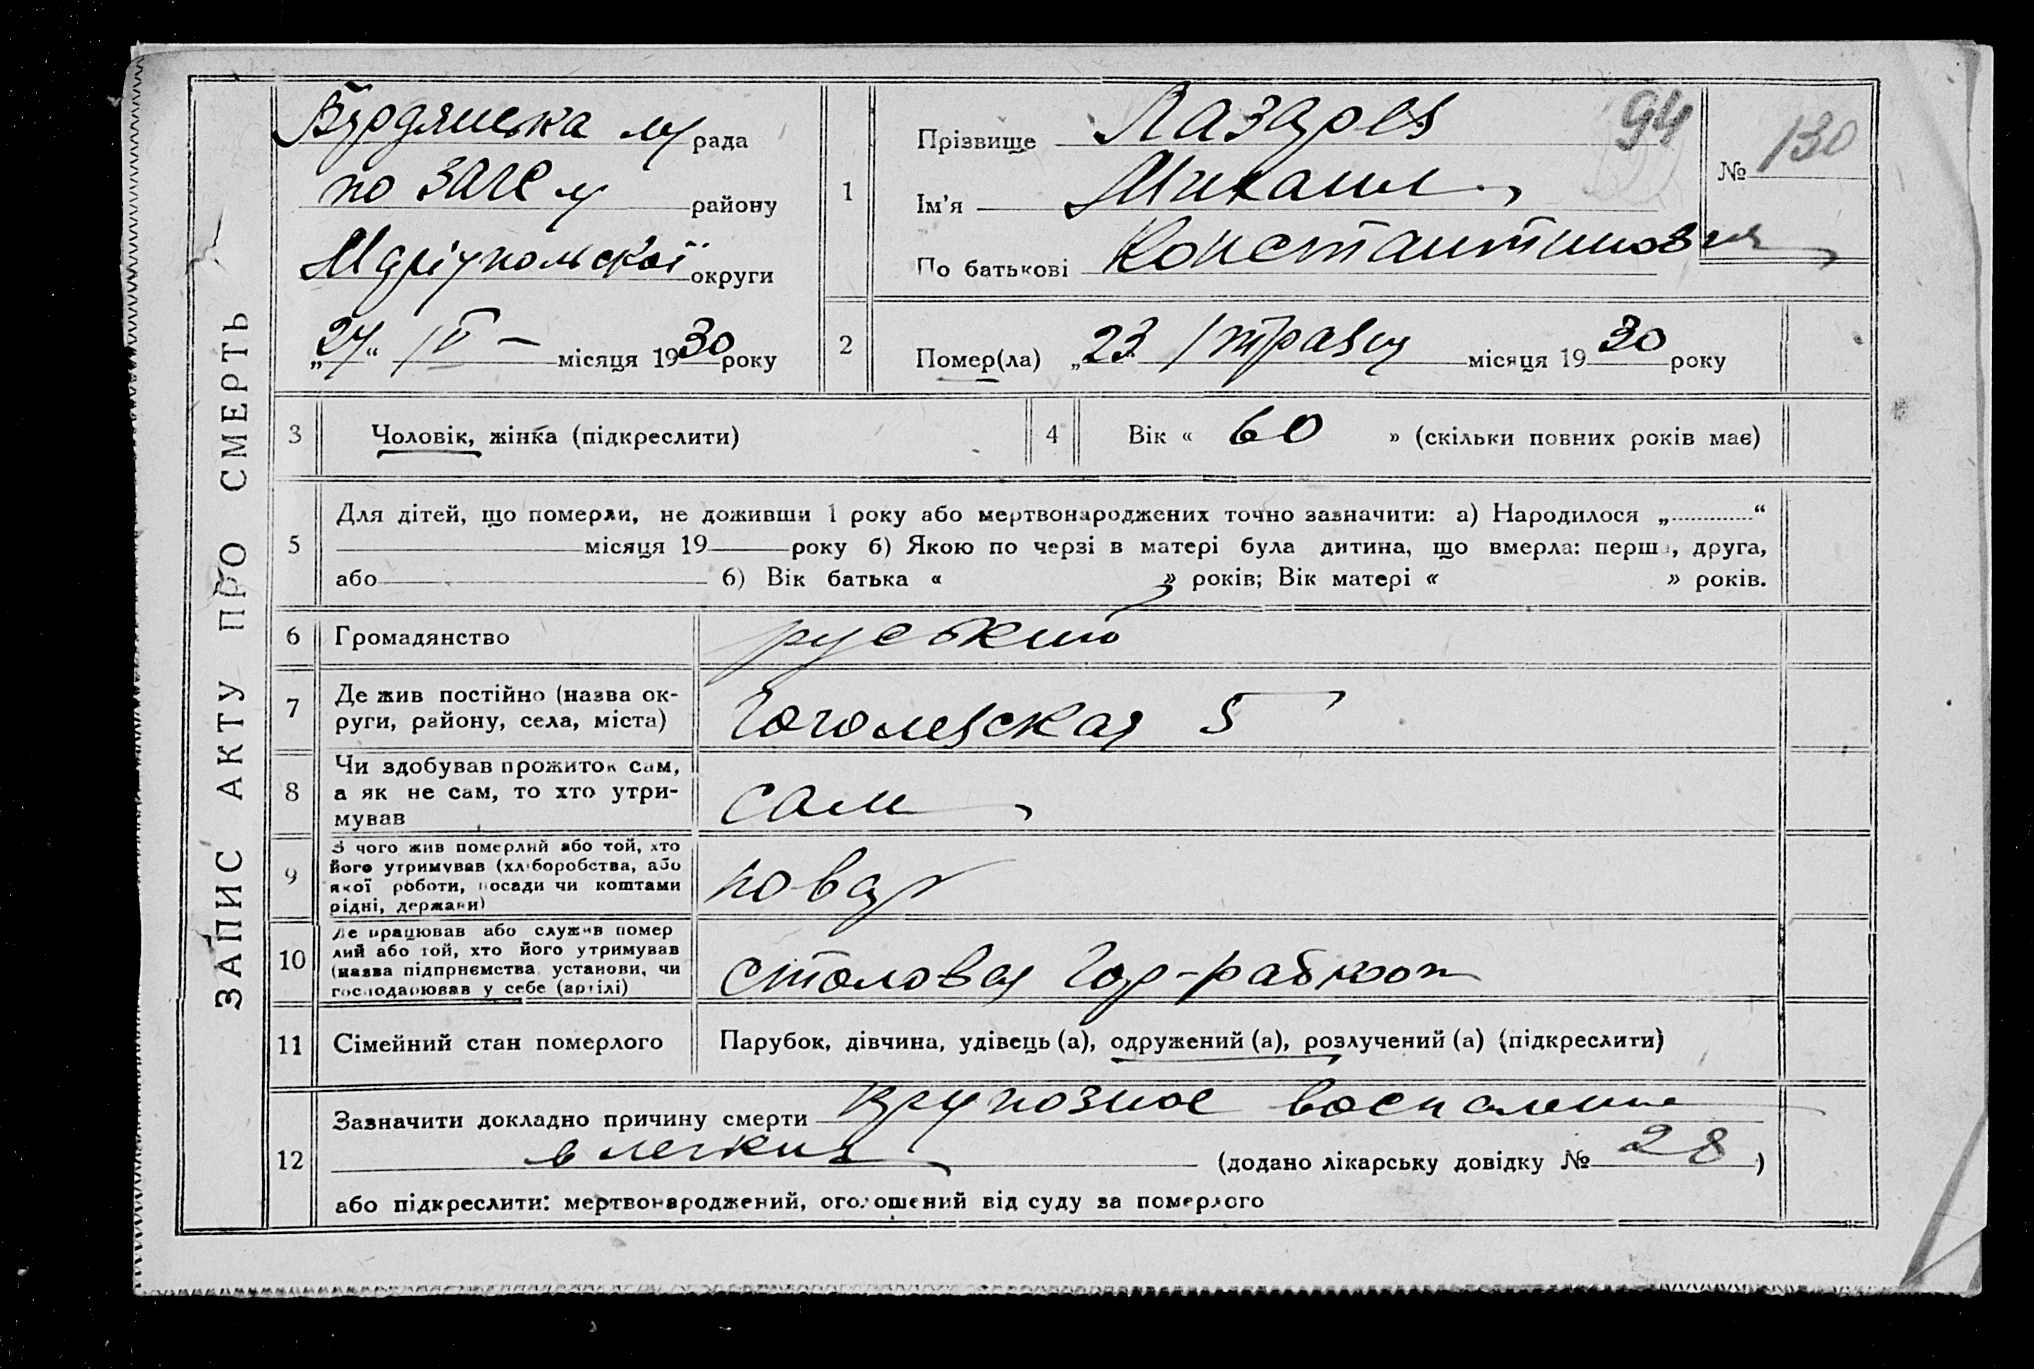 ЗАПИС АКТУ ПРО СМЕРТЬ
Бердянська м рада
по ЗАГС у району
Маріупольскої округи
„24“ IV — місяця 1930 року
1
Прізвище Лазарев
94
№ 130
Ім'я Михаил
По батькові Константинович
2
Помер(ла) „23“ травня місяця 1930 року
3 Чоловік, жінка (підкреслити)
4 Вік « 60 » (скільки повних років має)
5
Для дітей, що померли, не доживши 1 року або мертвонароджених точно зазначити: а) Народилося „ “
місяця 19 року б) Якою по черзі в матері була дитина, що вмерла: перша, друга,
або б) Вік батька « » років; Вік матері « » років.
6 Громадянство руський
7 Де жив постійно (назва ок-
руги, району, села, міста) Гоголевская 5
8 Чи здобував прожиток сам,
а як не сам, то хто утри-
мував сам
9 З чого жив померлий або той, хто
його утримував (хліборобства, або
якої роботи, посади чи коштами
рідні, держави) повар
10 Де працював або служив помер
лий або той, хто його утримував
(назва підприємства, установи, чи
господарював у себе (артілі) столовая Гор-рабкооп
11 Сімейний стан померлого Парубок, дівчина, удівець (а), одружений (а), розлучений (а) (підкреслити)
12
Зазначити докладно причину смерти Крупозное воспаление
в легких (додано лікарську довідку № 28)
або підкреслити: мертвонароджений, оголошений від суду за померлого